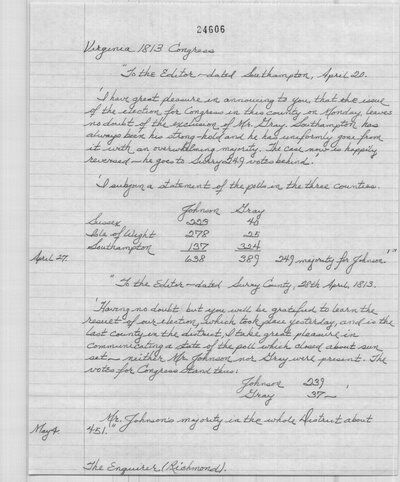 24606
Virginia 1813 Congress
"To the Editor - dated Southampton, April 20.
'I have great pleasure in announcing to you, that the issue
of the election for Congress in this county on Monday, leaves
no doubt of the of Mr. Gray. Southampton has
always been his strong-hold and he has uniformly gone from
it with an overwhelming majority. The case now is happily
reversed - he goes to Surry 249 votes behind.'
'I subjoin a statement of the polls in the three counties.
Johnson Gray
Sussex 223 40
Isle of Wight 278 25
Southampton 137 324
April 27. 638 389 249 majority for Johnson'"
"To the Editor - dated Surry County, 28th April, 1813.
'Having no doubt but you will be gratified to learn the
result of our election, which took place yesterday, and is the
last county in the district, I take great pleasure in
communicating a state of the poll which closed about sun
set - neither Mr. Johnson nor Gray were present. The
votes for Congress stand thus:
Johnson 239
Gray 37 - '
Mr. Johnson's majority in the whole District about
May 4. 451."
The Enquirer (Richmond).